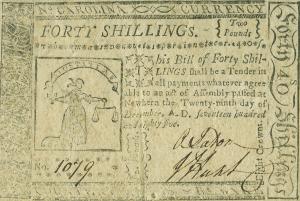 N. CAROLINA CURRENCY
FORTY SHILLINGS. Two Pounds
This Bill of Forty Shil-
LINGS shall be a Tender in
all payments whatever agree
able to an act of Assembly passed at
Newbern the Twenty-ninth day of
December, A. D. Seventeen hundred
and eighty five.
No. 1079
J Hunt
Eight Crowns
Forty 40 Shillings